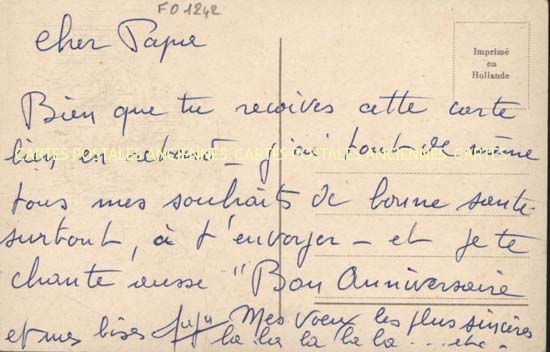 FO1242
cher Papa
Imprimé
en
Hollande
Bien que tu reçoives cette carte
bien en retard - j'ai tout de même
CARTES POSTALES ANCIENNES CARTES POSTALES ANCIENNES CARTES POSTALES
tous mes souhaits de bonne santé
surtout, à t'envoyer - et je te
chante aussi "Bon Anniversaire
et mes bises Juju Mes voeux les plus sincères
la la la la la ... etc.